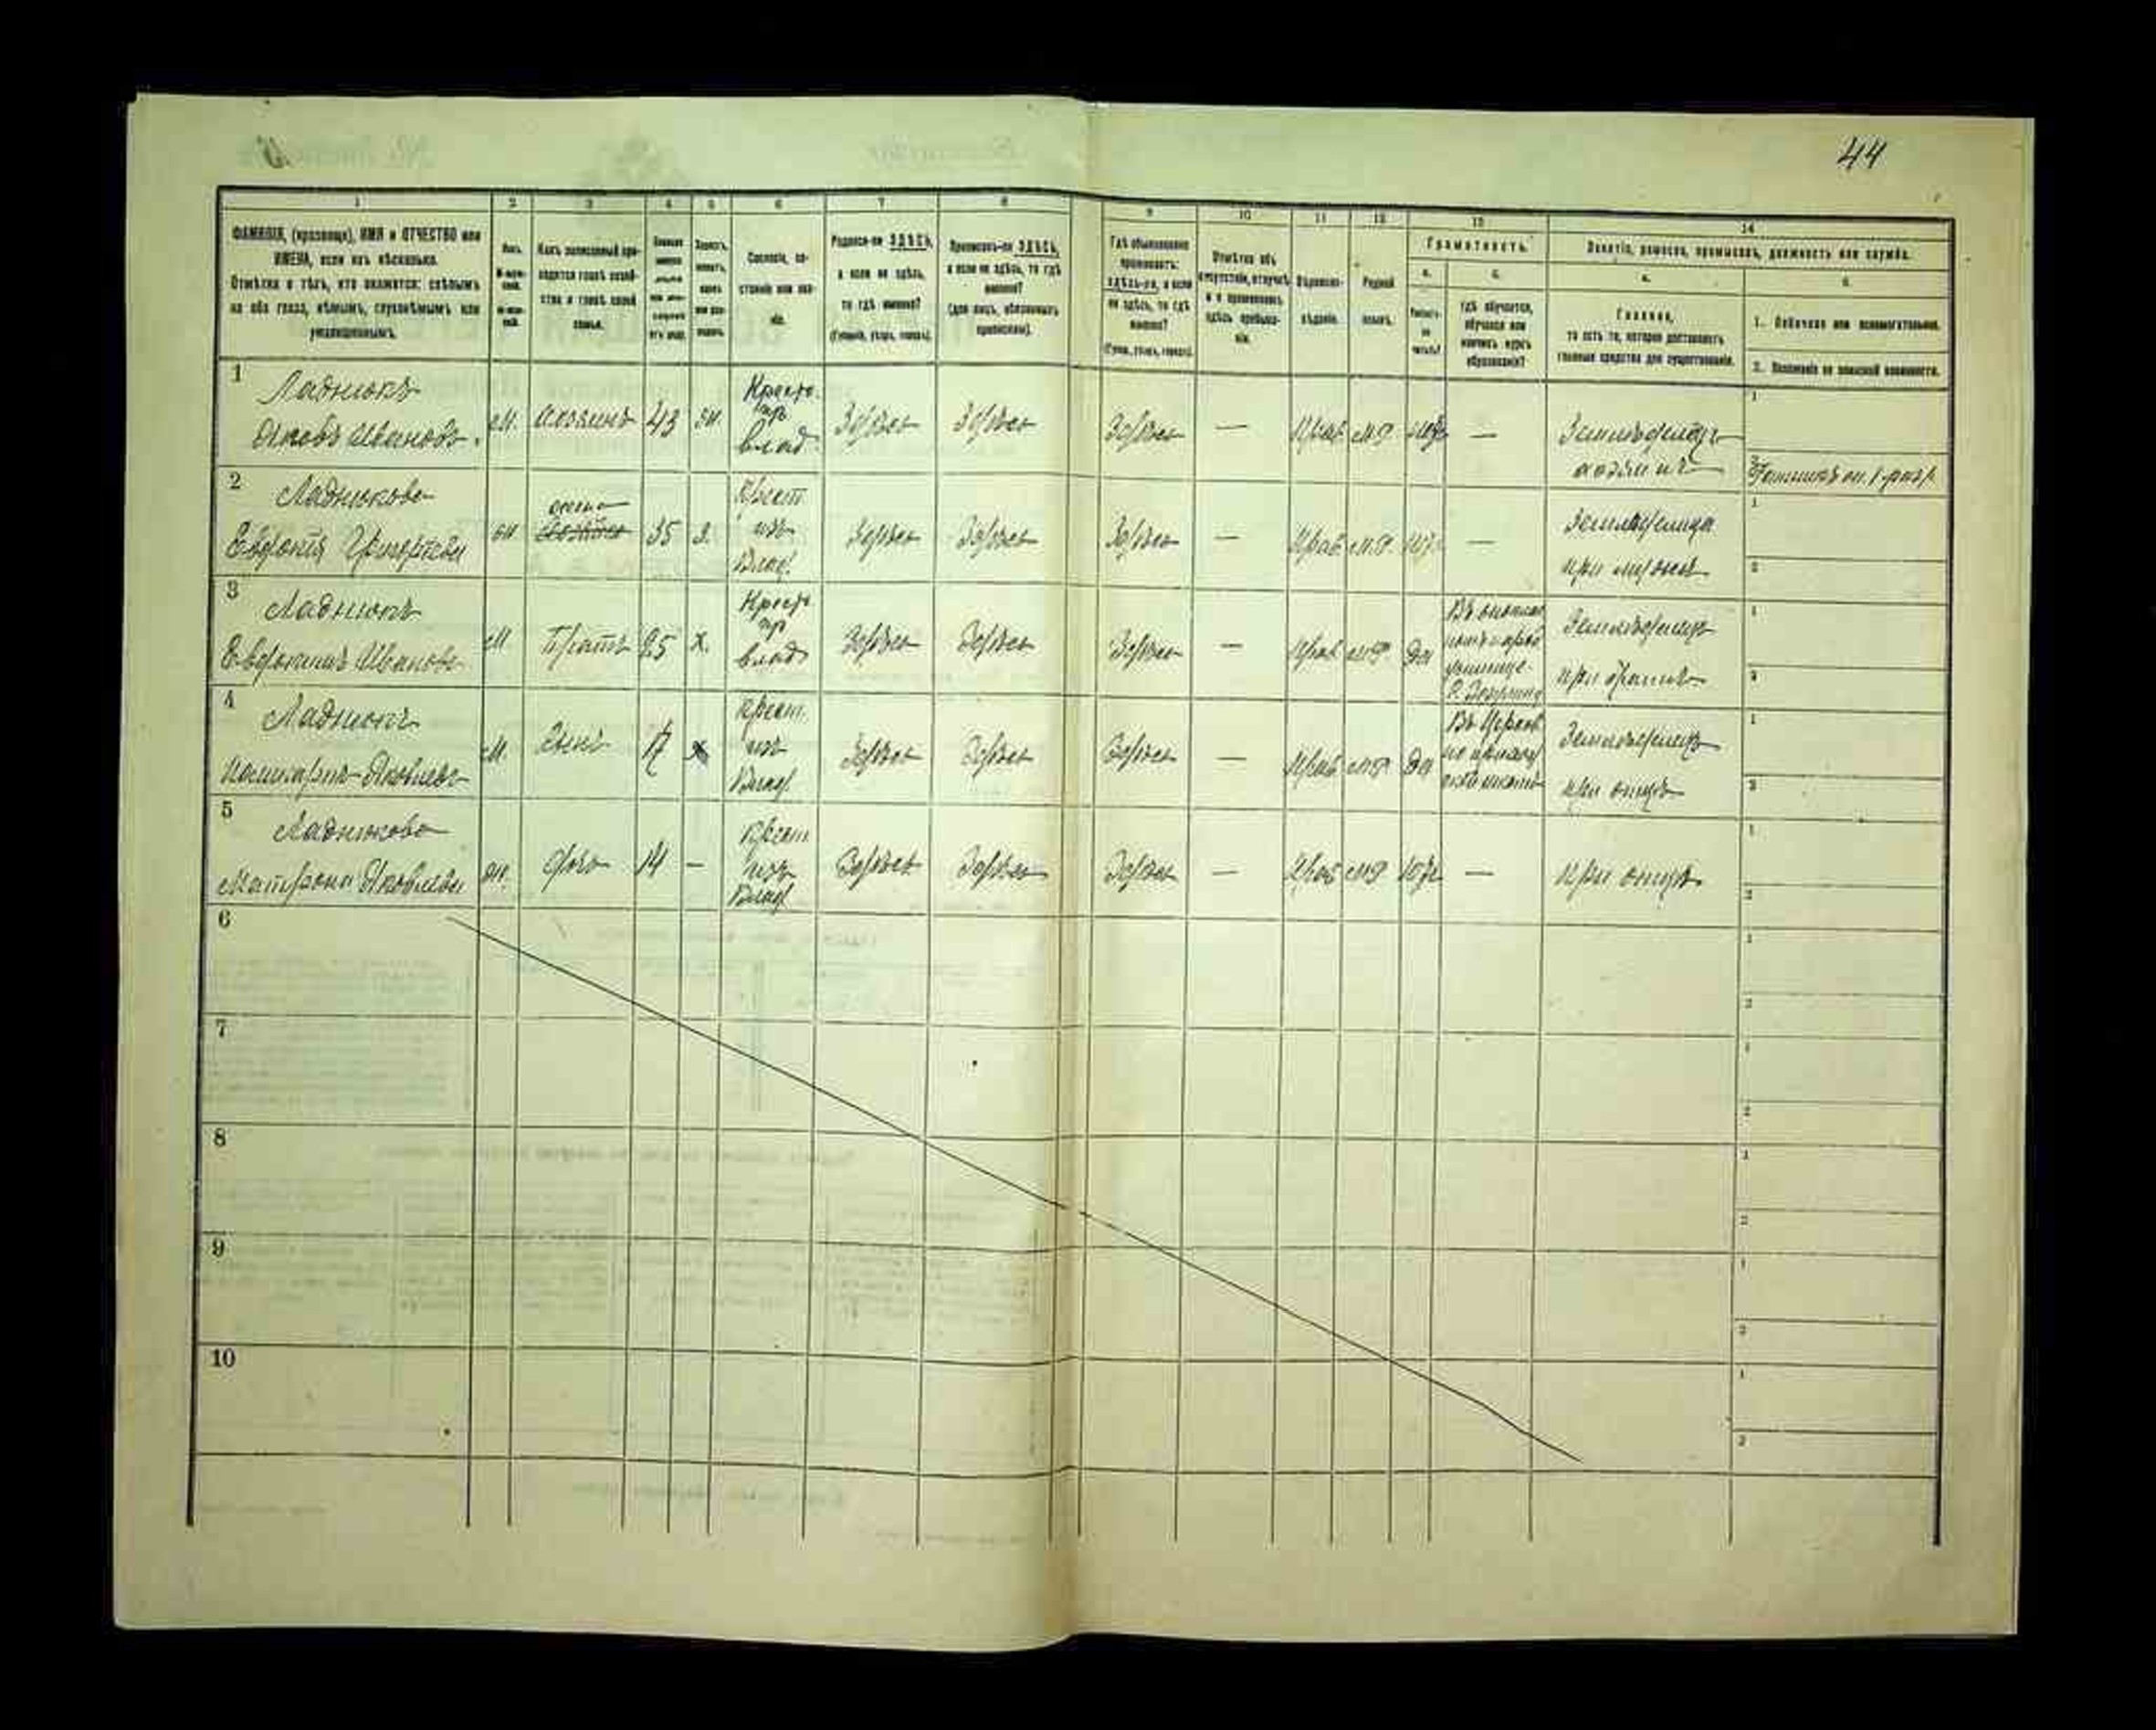 44
1 2 3 4 5 6 7 8 9 10 11 12 13 14
ФАМИЛІЯ, (прозвище), ИМЯ и ОТЧЕСТВО или
ИМЕНА, если ихъ нѣсколько.
Отмѣтка о тѣхъ, кто окажется: слѣпымъ
на оба глаза, нѣмымъ, глухонѣмымъ или
умалишеннымъ.
Полъ.
Какъ записанный при-
ходится главѣ хозяй-
ства и главѣ своей
семьи.
Сословіе, со-
стояніе или зва-
ніе.
Родился-ли ЗДѢСЬ,
а если не здѣсь,
то гдѣ именно?
(Губернія, уѣздъ, городъ).
Приписанъ-ли ЗДѢСЬ,
а если не здѣсь, то гдѣ
именно?
(для лицъ, обязанныхъ
припискою).
Гдѣ обыкновенно
проживаетъ:
здѣсь-ли, а если
не здѣсь, то гдѣ
именно?
(Губ., уѣздъ, городъ).
Отмѣтка объ
отсутствіи, отлучкѣ
и о временномъ
здѣсь пребыва-
ніи.
Вѣроиспо-
вѣданіе.
Родной
языкъ.
Грамотность.
а. б.
Умѣетъ-
ли
читать?
Гдѣ обучается,
обучался или
кончилъ курсъ
образованія?
Занятіе, ремесло, промыселъ, должность или служба.
а. б.
Главное,
то есть то, которое доставляетъ
главныя средства для существованія.
1. Побочное или вспомогательное.
2. Положеніе по воинской повинности.
1
Ладнюкъ
Яковъ Ивановъ.
м. хозяинъ 43 ж.
Крест.
изъ
влад.
Здѣсь Здѣсь Здѣсь — Прав. —
Земледѣлецъ
хозяинъ
1
2
2
Ладнюкова
Евфонія Григорьева
ж. жена 35 з.
Крест.
изъ
Влад.
Здѣсь Здѣсь Здѣсь — Прав. —
Земледѣлица
при мужѣ
1
2
3
Ладнюкъ
Ивановъ
м. Братъ 25 х.
Крест.
изъ
влад.
Здѣсь Здѣсь Здѣсь — Прав. да
училище
Земледѣлецъ
при братѣ
1
2
4
Ладнюкъ
Яковлевъ
м. Сынъ 17 х
Крест.
изъ
Влад.
Здѣсь Здѣсь Здѣсь — Прав. да
Въ Церков
но приход
ской школѣ
Земледѣлецъ
при отцѣ
1
2
5
Ладнюкова
Матрона Яковлева
ж. дочь 14 —
Крест.
изъ
Влад.
Здѣсь Здѣсь Здѣсь — Прав. —
при отцѣ
1
2
6
1
2
7
1
2
8
1
2
9
1
2
10
1
2